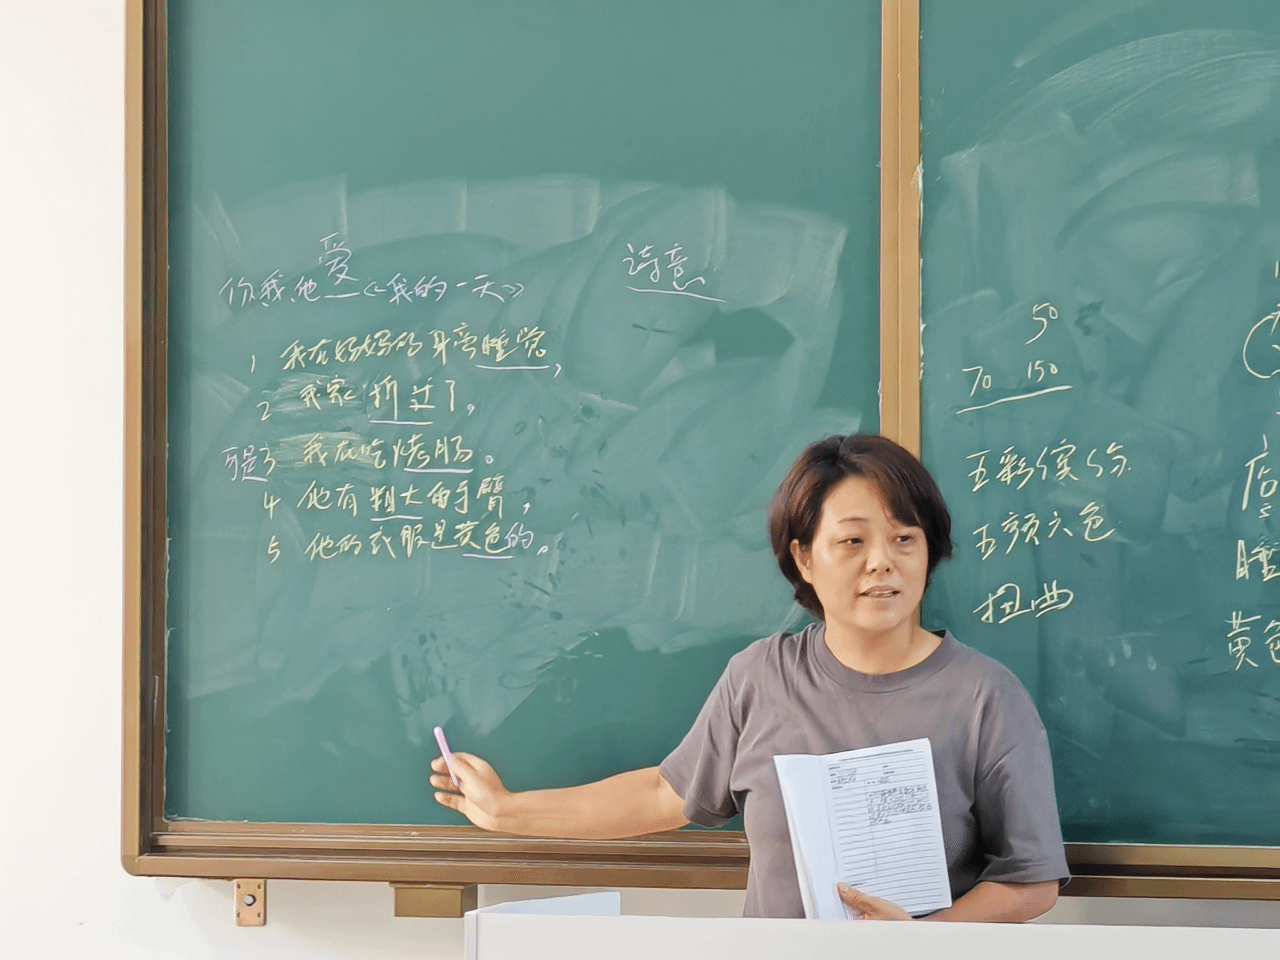 爱
你我他 《我的一天》
诗意
1 我在妈妈的身旁睡觉，
2 我家 拆迁了，
可是3 我在吃烤肠。
4 他有粗大的手臂，
5 他的衣服是黄色的。
50
70 150
五彩缤纷
五颜六色
扭曲
店
睡
黄色